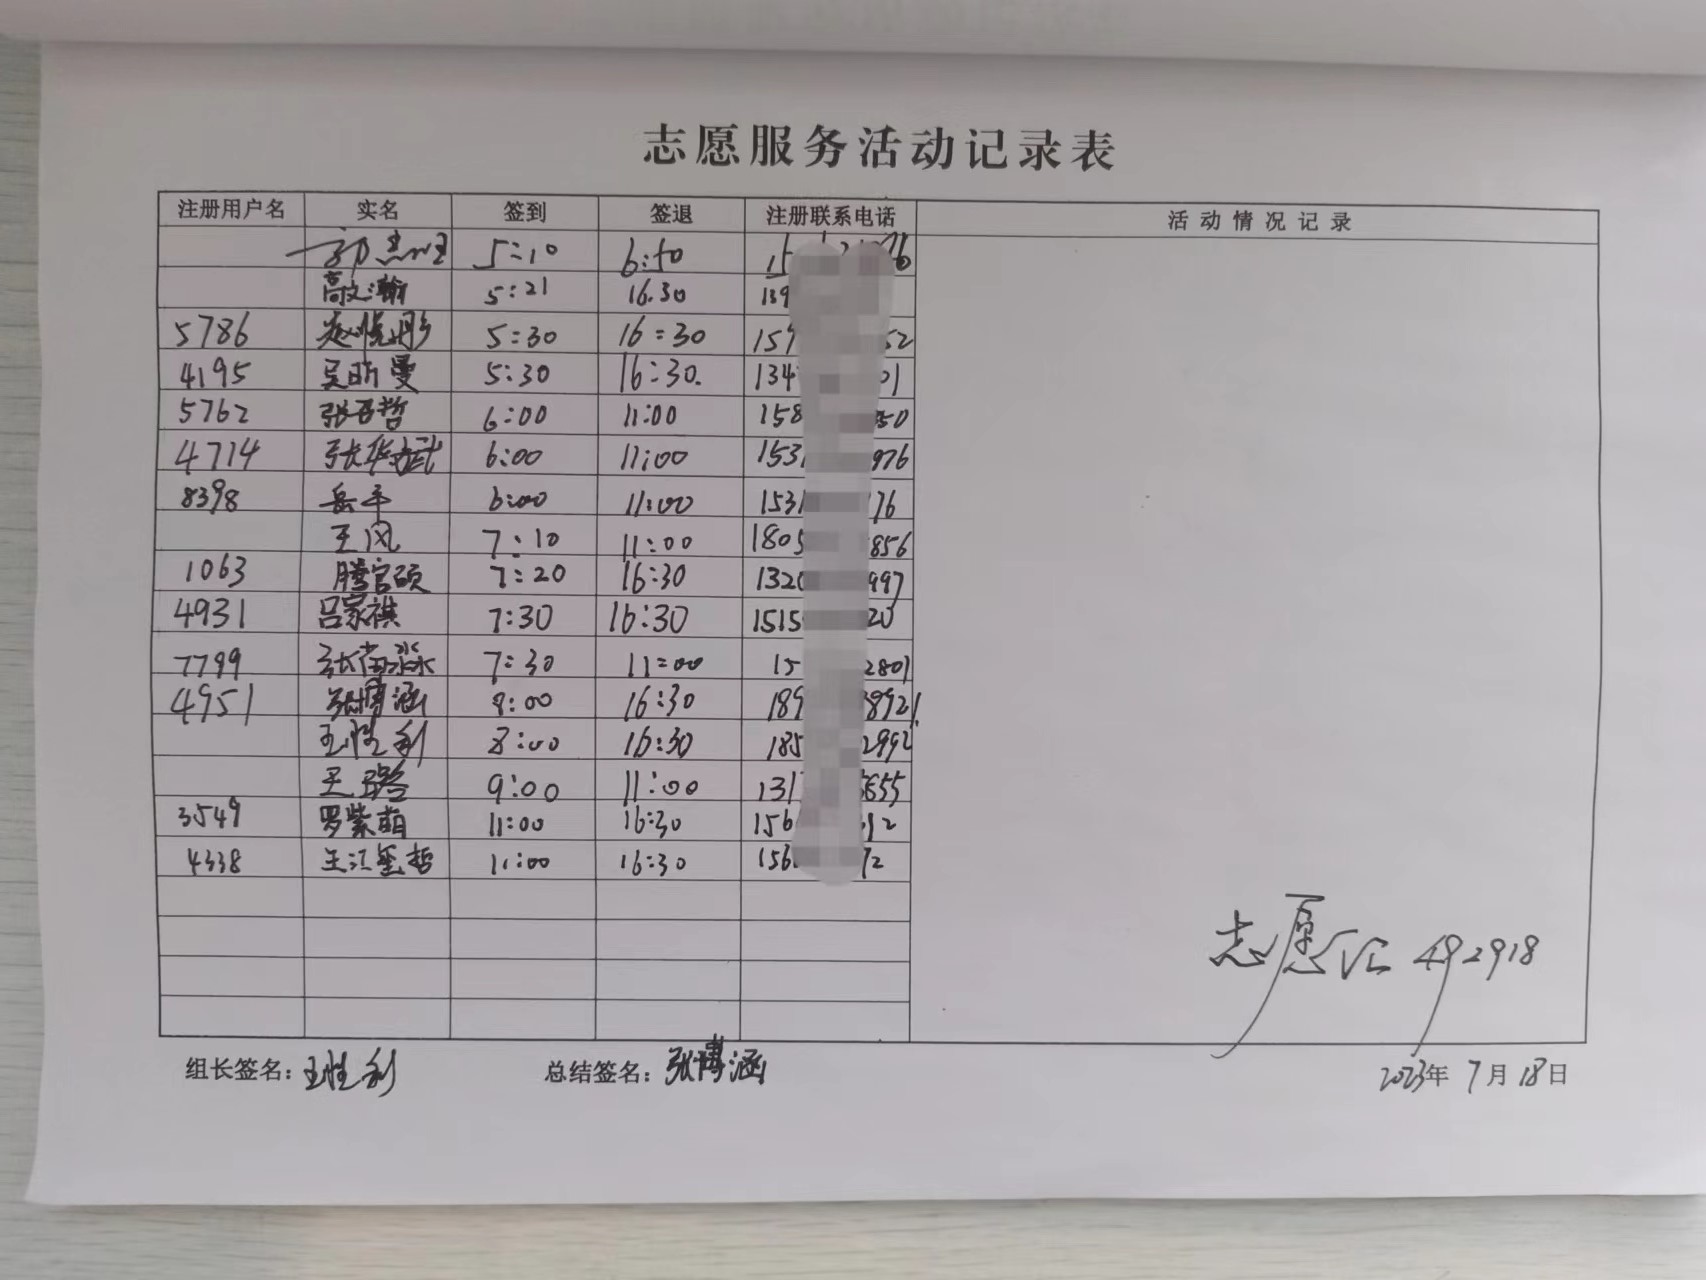 志愿服务活动记录表
注册用户名 实名 签到 签退 注册联系电话 活动情况记录
5:10 6:50 15
高文瀚 5:21 16.30 139
5786 赵悦彤 5:30 16:30 159 52
4195 吴昕曼 5:30 16:30. 134 01
5762 张百哲 6:00 11:00 158 50
4714 张华斌 6:00 11:00 153 976
8398 岳平 6:00 11:00 153 76
王风 7:10 11:00 1805 856
1063 腾官硕 7:20 16:30 132 997
4931 吕家祺 7:30 16:30 1515 20
7799 张尚淼 7:30 11:00 15 2801
4951 张博涵 8:00 16:30 189 8921
王胜利 8:00 16:30 185 2992
王璐 9:00 11:00 131 655
3549 罗紫萌 11:00 16:30 156 92
4338 王江玺哲 11:00 16:30 156 72
志愿汇 492918
组长签名：王胜利 总结签名：张博涵 2023年7月18日